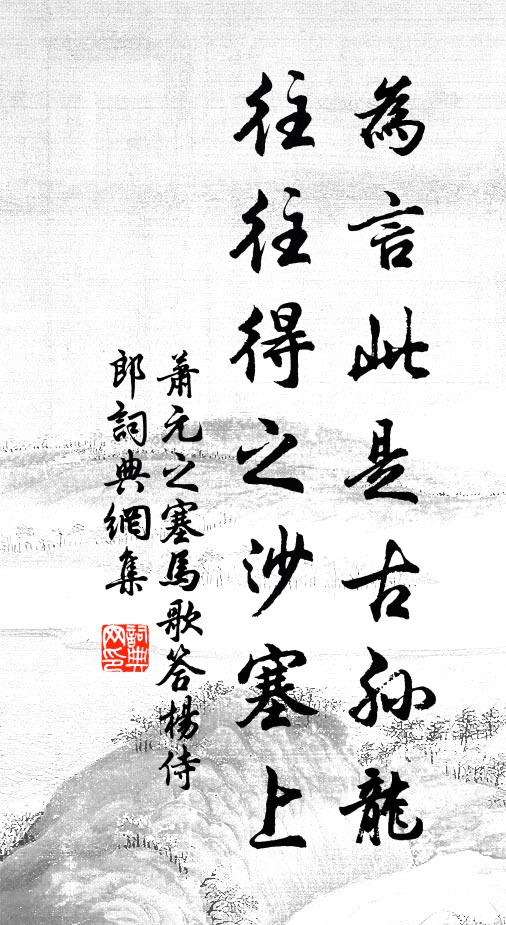 為言此是古孫龍
往往得之沙塞上
蕭元之塞馬歌答楊侍
郎詞典網集
詞典